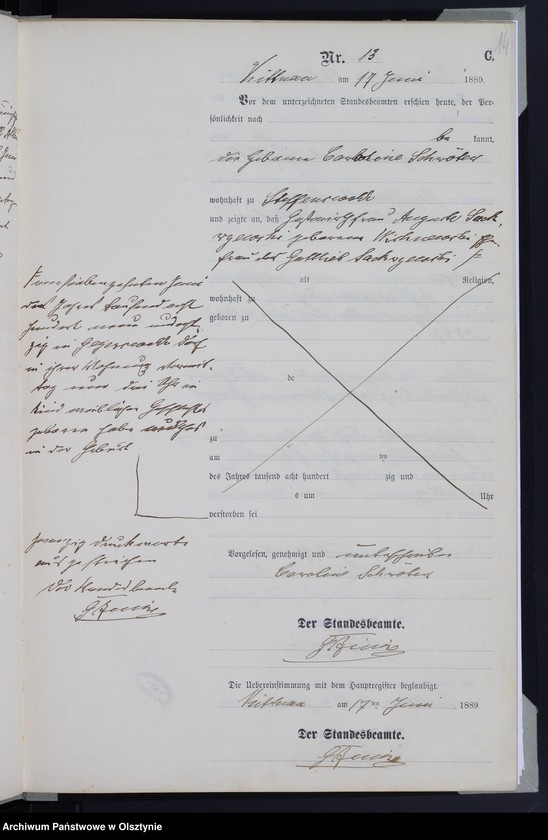 14
Nr. 13
C.
am 17 Juni 1889.
Vor dem unterzeichneten Standesbeamten erschien heute, der Per-
sönlichkeit nach
be kannt,
die Hebamme Caroline Schröter
wohnhaft zu Steffenswalde
und zeigte an, daß Gastwirthfrau Auguste Sack-
geborene Ehe-
frau des Gottlieb
alt Religion,
wohnhaft zu
geboren zu
de
zu
am ten
des Jahres tausend acht hundert zig und
s um Uhr
verstorben sei
vom siebenzehnten Juni
des Jahres tausend acht
hundert neun und acht-
zig in Dorf
in ihrer Wohnung Vormit-
tag um drei Uhr ein
Kind weiblichen Geschlechts
geboren habe welches
in der Geburt
zwanzig Druckworte
gestrichen
Der Standesbeamte
Vorgelesen, genehmigt und unterschrieben
Caroline Schröter
Der Standesbeamte.
Die Uebereinstimmung mit dem Hauptregister beglaubigt.
am 17ten Juni 1889
Der Standesbeamte.
Archiwum Państwowe w Olsztynie